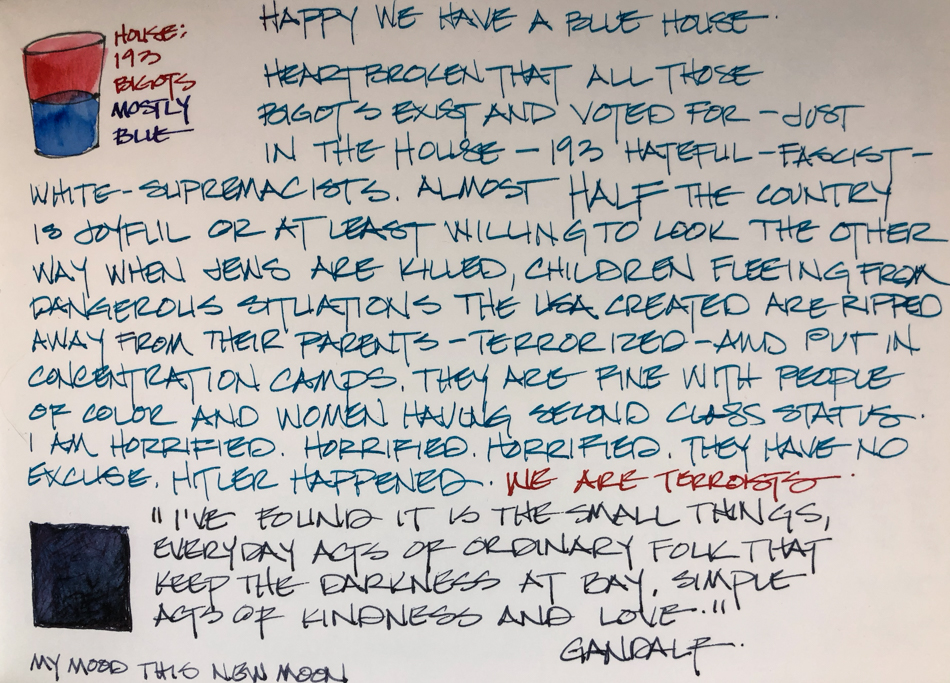 HAPPY WE HAVE A BLUE HOUSE.
HOUSE:
193
BIGOTS
MOSTLY
BLUE
HEARTBROKEN THAT ALL THOSE
BIGOTS EXIST AND VOTED FOR - JUST
IN THE HOUSE - 193 HATEFUL - FASCIST -
WHITE - SUPREMACISTS. ALMOST HALF THE COUNTRY
IS JOYFUL OR AT LEAST WILLING TO LOOK THE OTHER
WAY WHEN JEWS ARE KILLED, CHILDREN FLEEING FROM
DANGEROUS SITUATIONS THE USA CREATED ARE RIPPED
AWAY FROM THEIR PARENTS - TERRORIZED - AND PUT IN
CONCENTRATION CAMPS. THEY ARE FINE WITH PEOPLE
OF COLOR AND WOMEN HAVING SECOND CLASS STATUS.
I AM HORRIFIED. HORRIFIED. HORRIFIED. THEY HAVE NO
EXCUSE. HITLER HAPPENED. WE ARE TERROISTS.
"I'VE FOUND IT IS THE SMALL THINGS,
EVERYDAY ACTS OF ORDINARY FOLK THAT
KEEP THE DARKNESS AT BAY. SIMPLE
ACTS OF KINDNESS AND LOVE."
GANDALF.
MY MOOD THIS NEW MOON